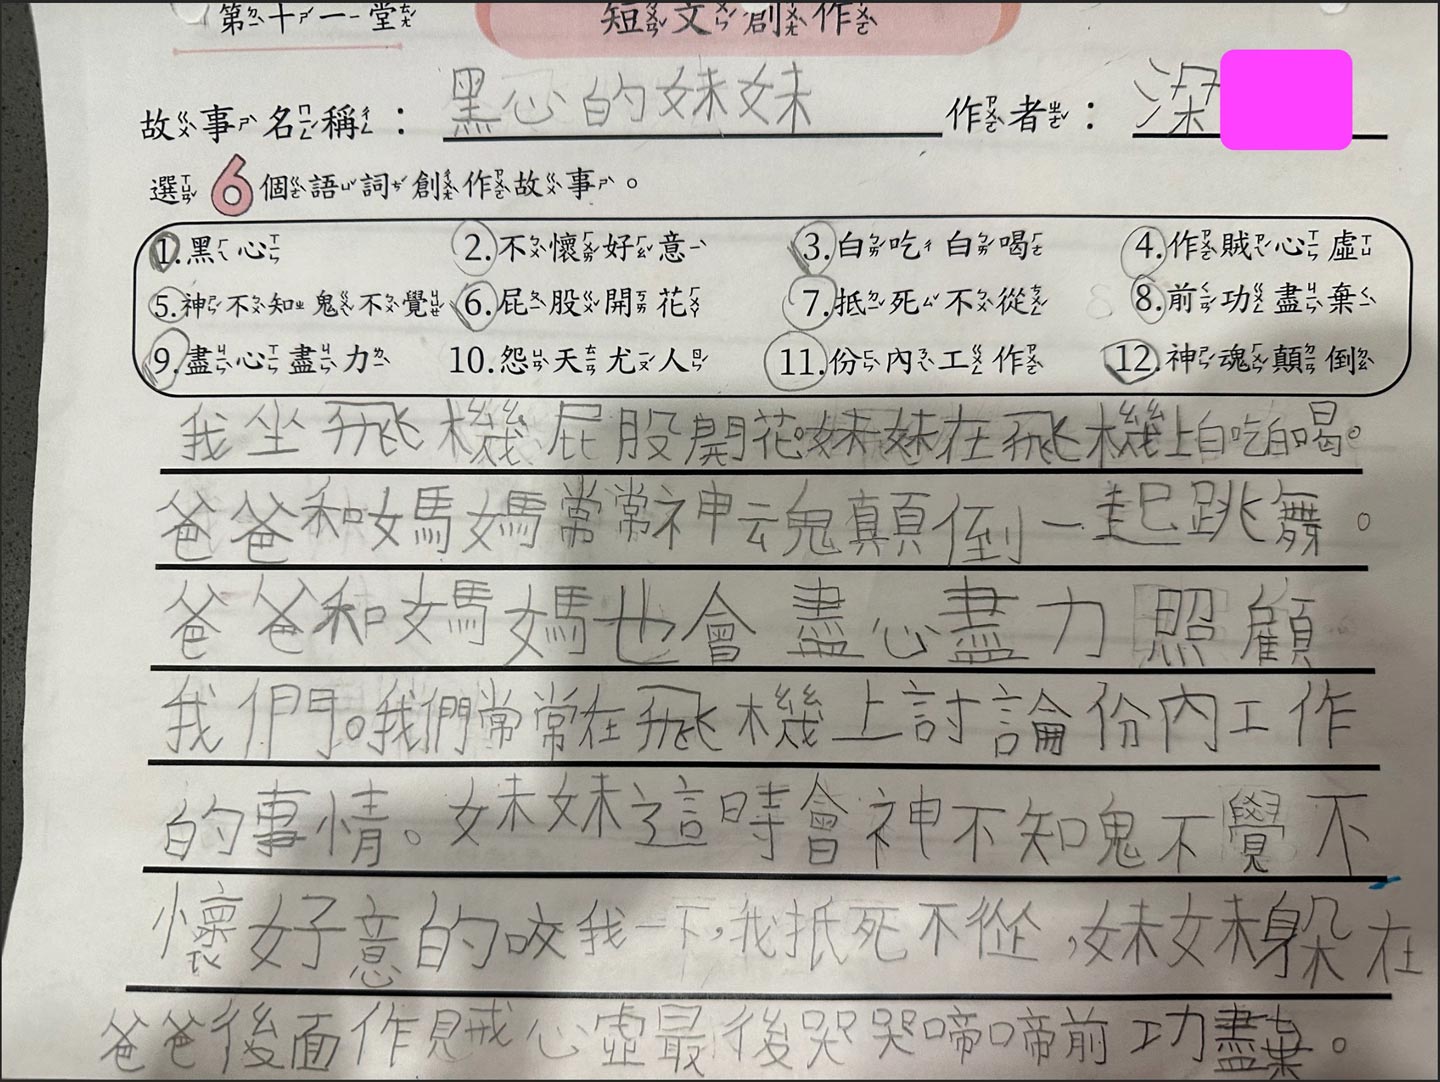 第十一堂 短文創作
故事名稱：黑心的妹妹 作者：梁
選6個語詞創作故事。
1.黑心 2.不懷好意 3.白吃白喝 4.作賊心虛
5.神不知鬼不覺 6.屁股開花 7.抵死不從 8.前功盡棄
9.盡心盡力 10.怨天尤人 11.份內工作 12.神魂顛倒
我坐飛機屁股開花。妹妹在飛機上白吃白喝。
爸爸和媽媽常常神魂顛倒一起跳舞。
爸爸和媽媽也會盡心盡力照顧
我們。我們常常在飛機上討論份內工作
的事情。妹妹這時會神不知鬼不覺不
懷好意的咬我一下,我抵死不從,妹妹躲在
爸爸後面作賊心虛最後哭哭啼啼前功盡棄。